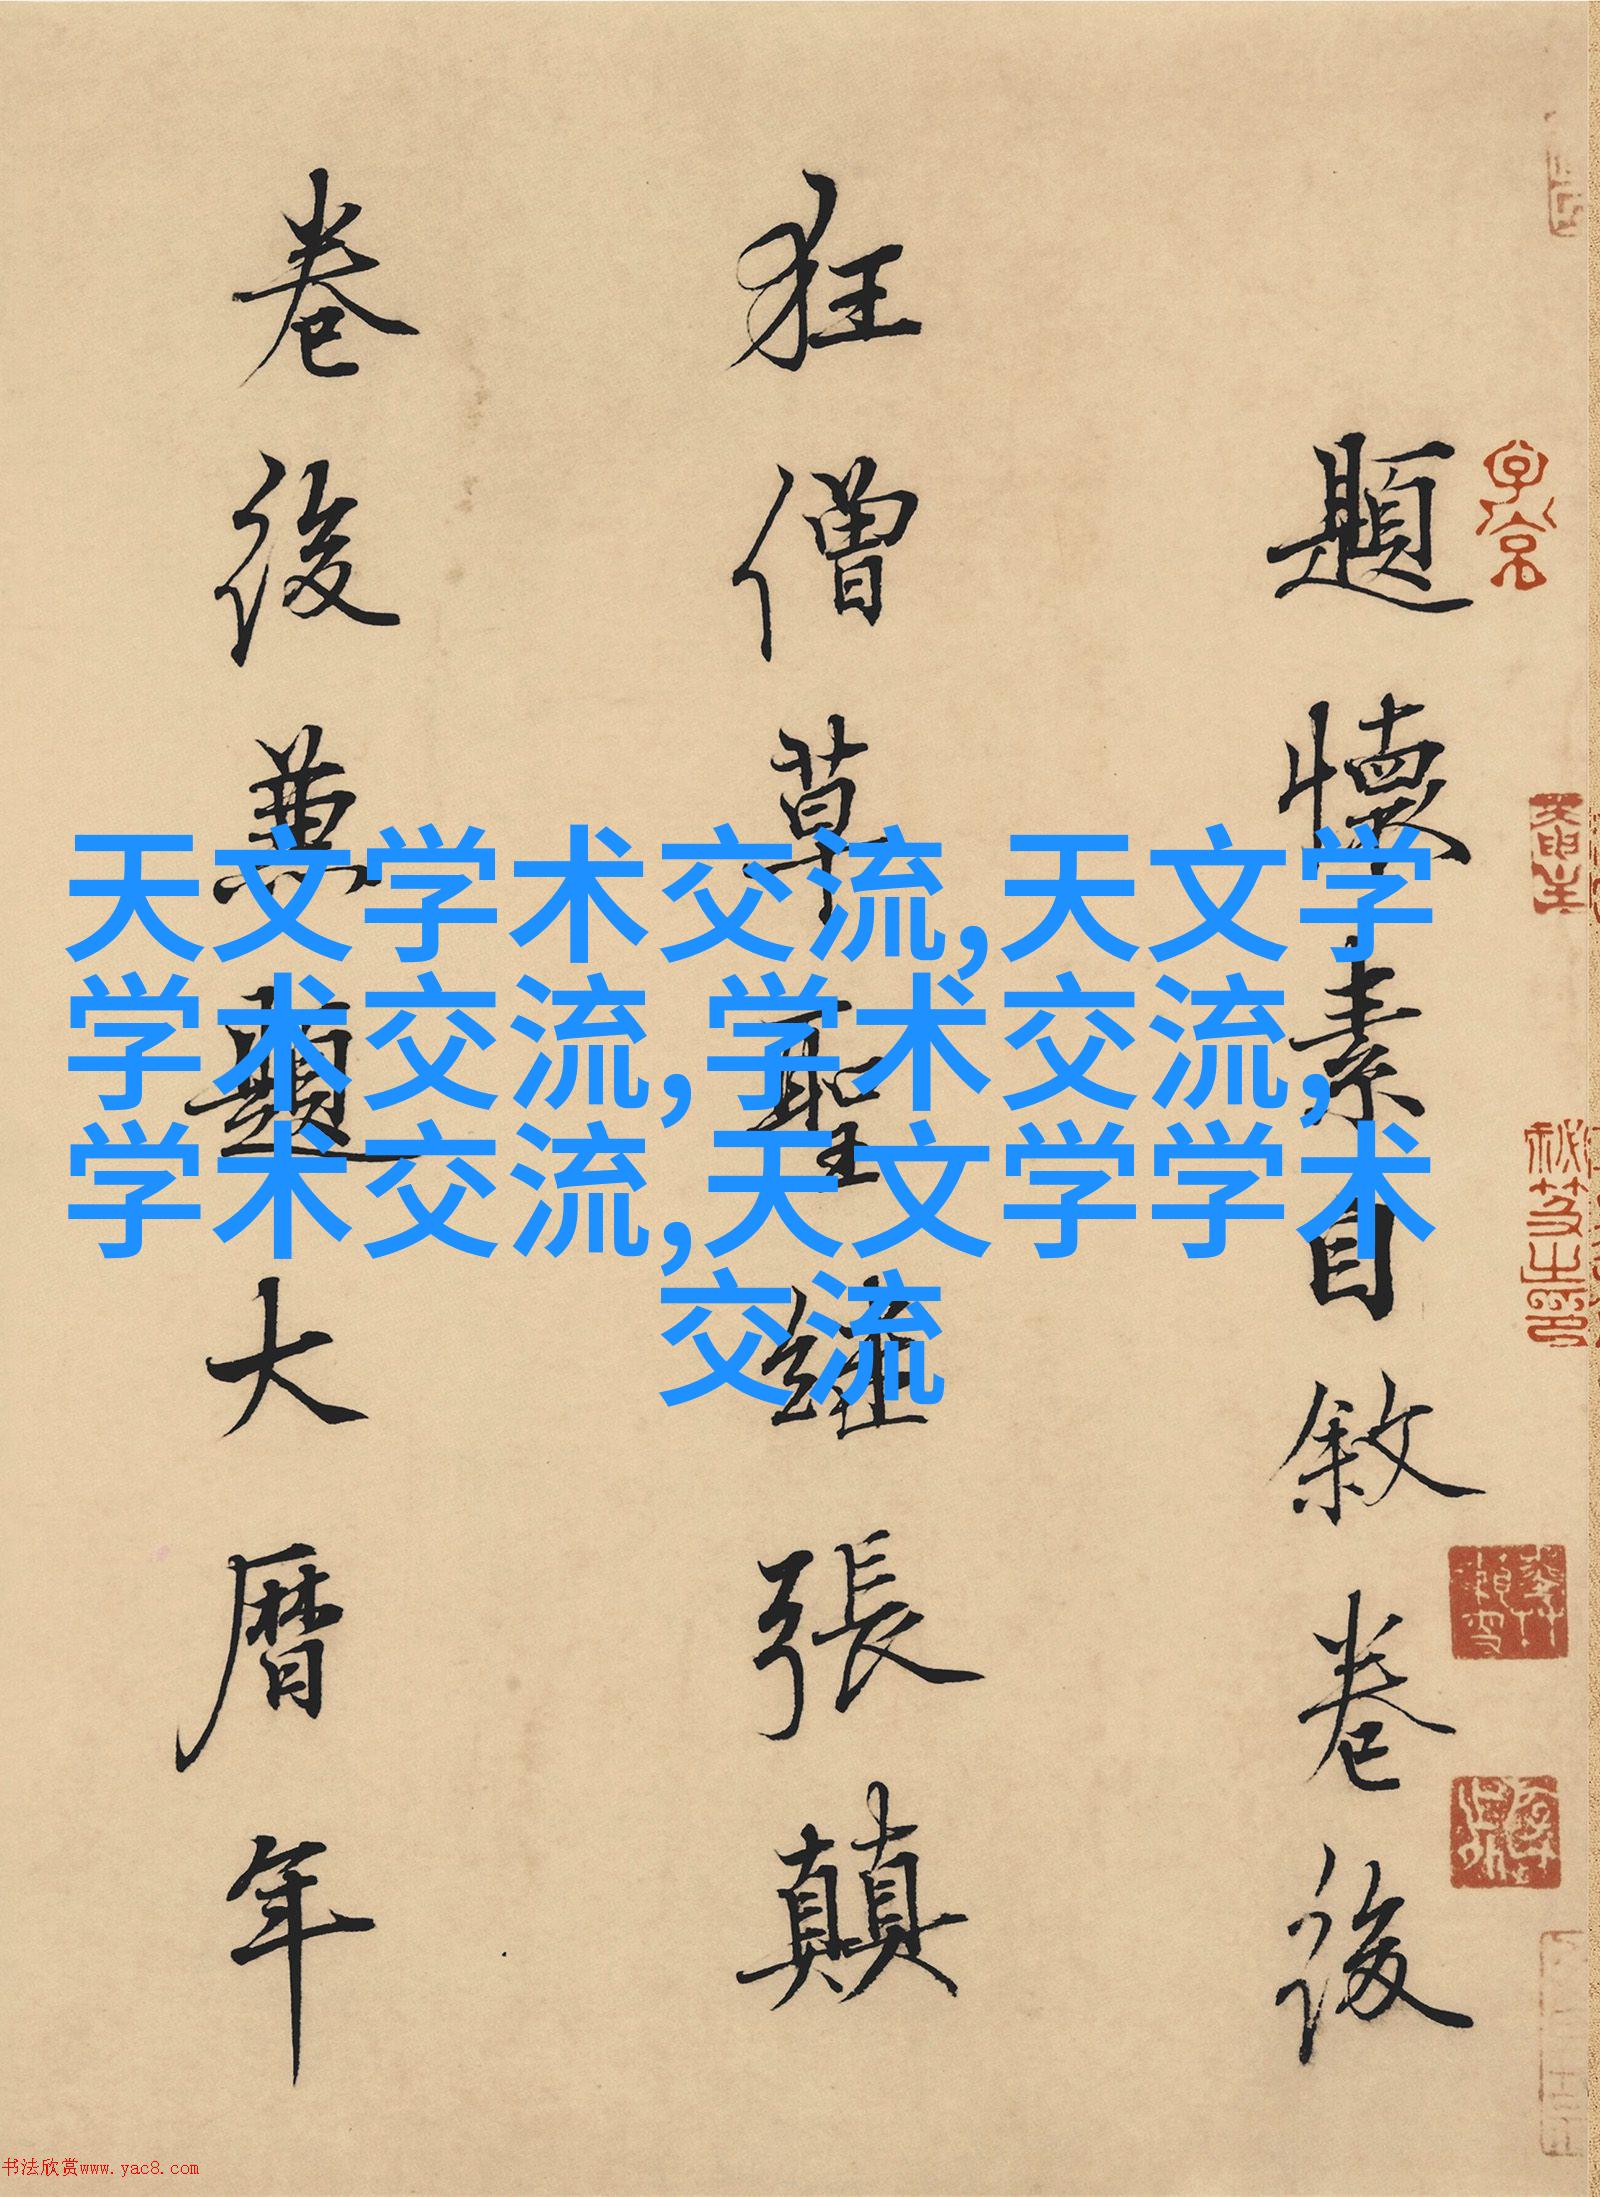 題懷素自敘卷後
狂僧草聖繼張顛
卷後兼題大曆年
天文学术交流,天文学
学术交流,学术交流,
学术交流,天文学学术
交流
书法欣赏www.yac8.com